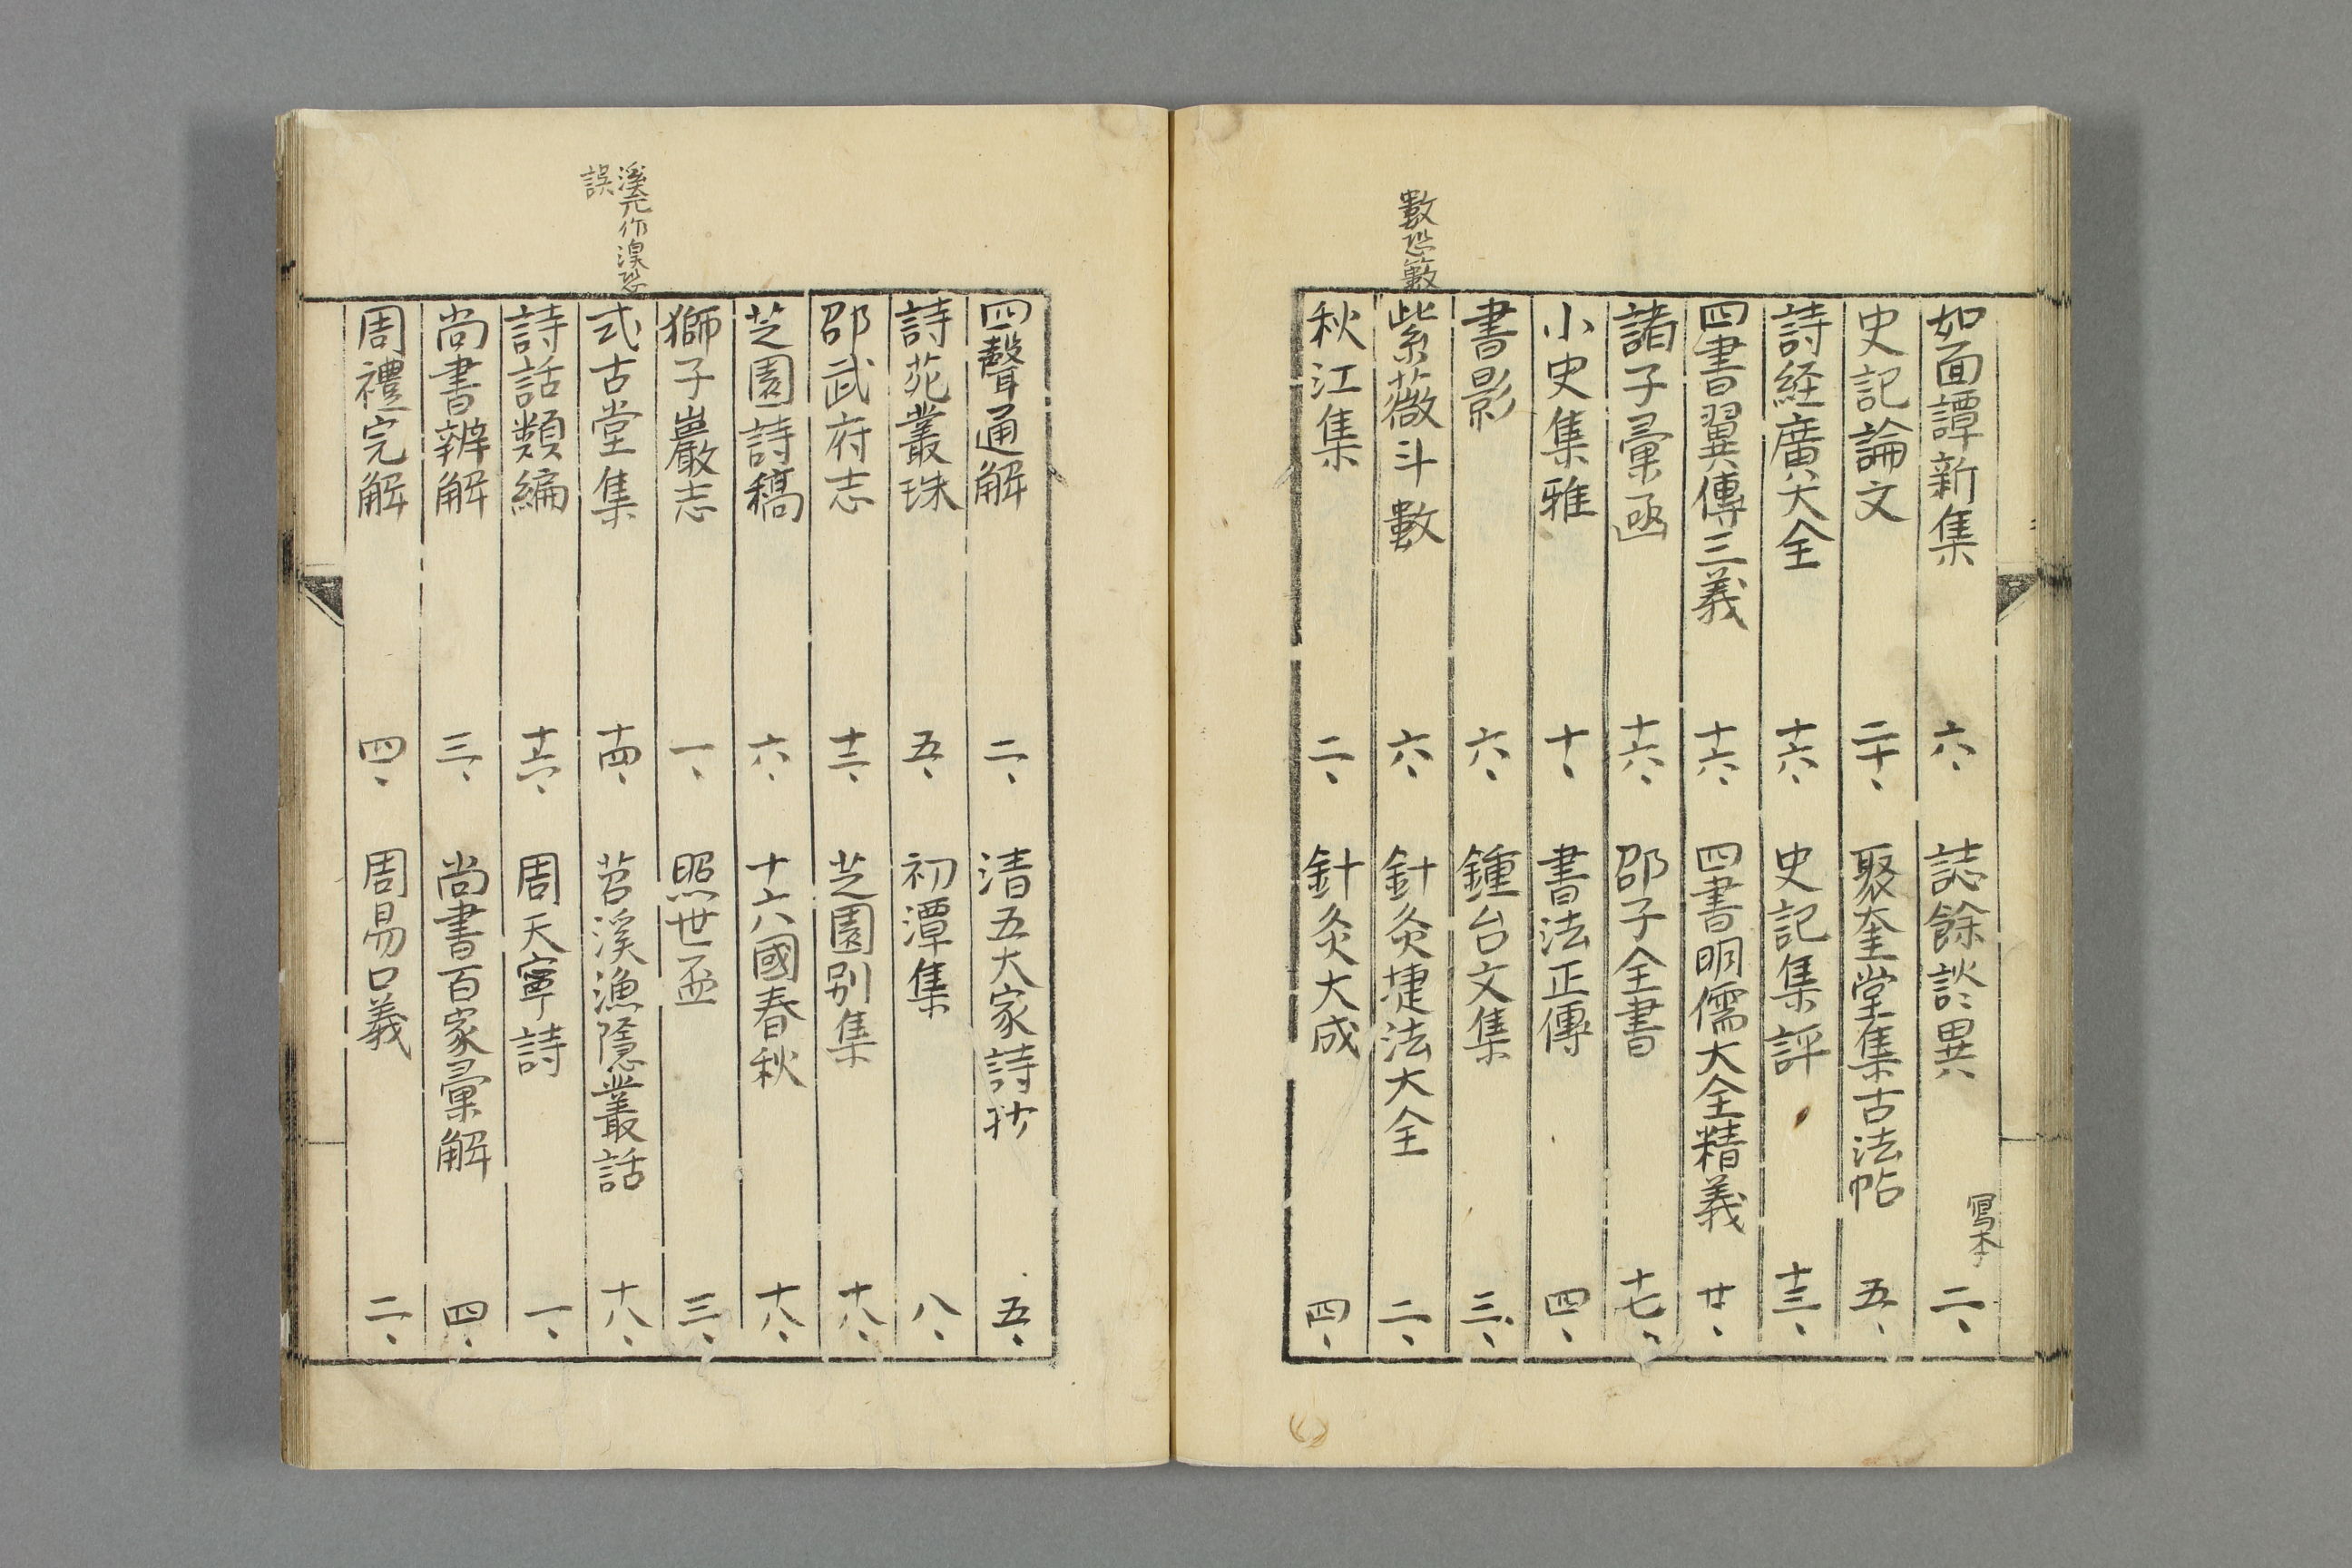 如面譚新集 六、 誌餘談異 寫本 二、
史記論文 二十、 聚奎堂集古法帖 五、
詩経廣大全 十六、 史記集評 十三、
四書翼傳三義 十六、 四書明儒大全精義 廿、
諸子彙函 十六、 邵子全書 十七、
小史集雅 十、 書法正傳 四、
書影 六、 鍾台文集 三、
數恐藪
紫薇斗數 六、 針灸捷法大全 二、
秋江集 二、 針灸大成 四、
四聲通解 二、 清五大家詩抄 五、
詩苑叢珠 五、 初潭集 八、
邵武府志 十二、 芝園別集 十八、
芝園詩稿 六、 十六國春秋 十八、
獅子巖志 一、 照世盃 三、
溪元作湨恐
誤
式古堂集 十四、 苕溪漁隱叢話 十八、
詩話類編 十六、 周天寧詩 一、
尚書辨解 三、 尚書百家彙解 四、
周禮完解 四、 周易口義 二、